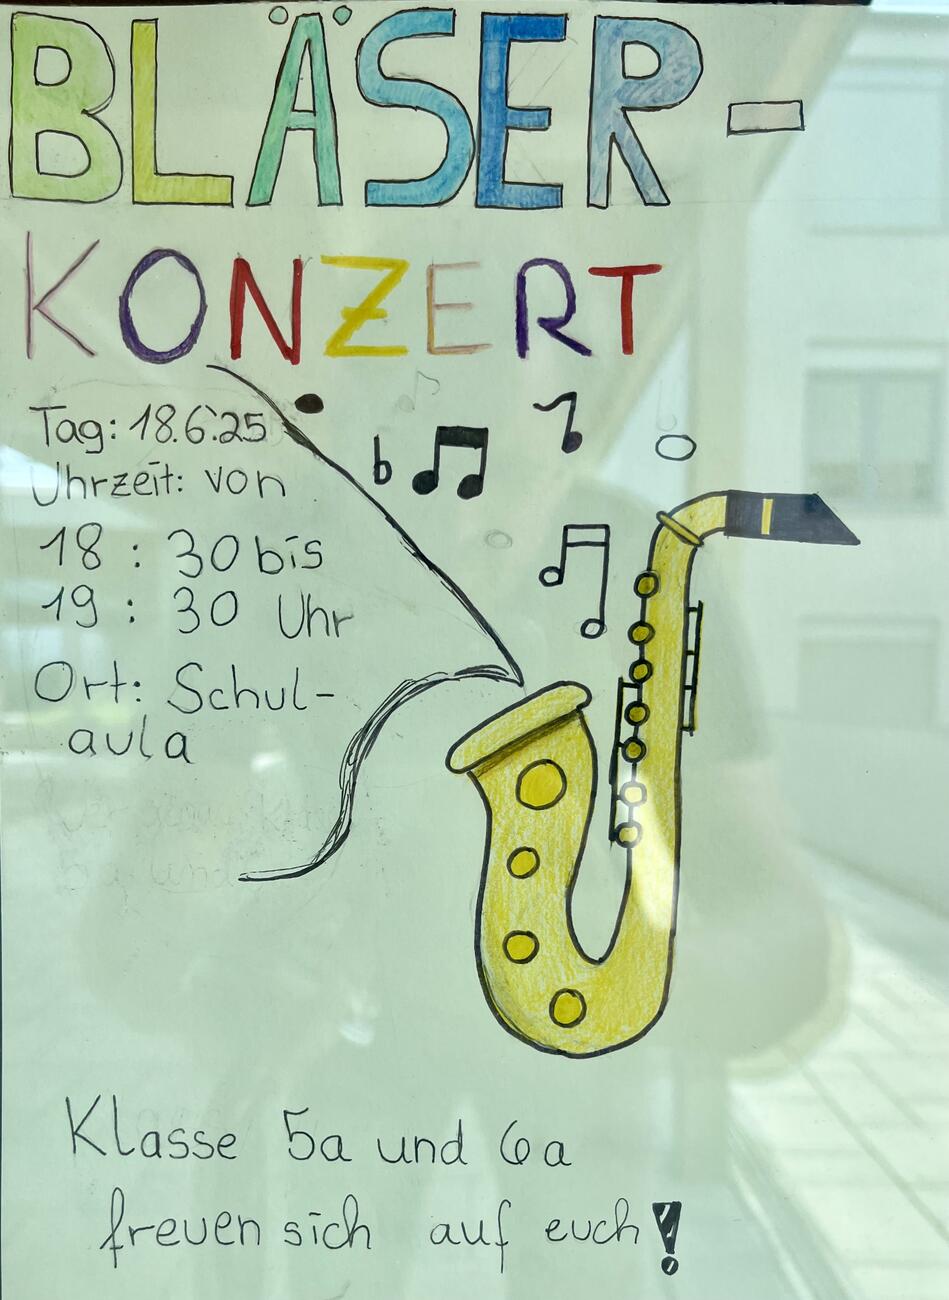 BLÄSER-
KONZERT
Tag: 18.6.25
Uhrzeit: von
18 : 30 bis
19 : 30 Uhr
Ort: Schul-
aula
Klasse 5a und 6a
freuen sich auf euch!